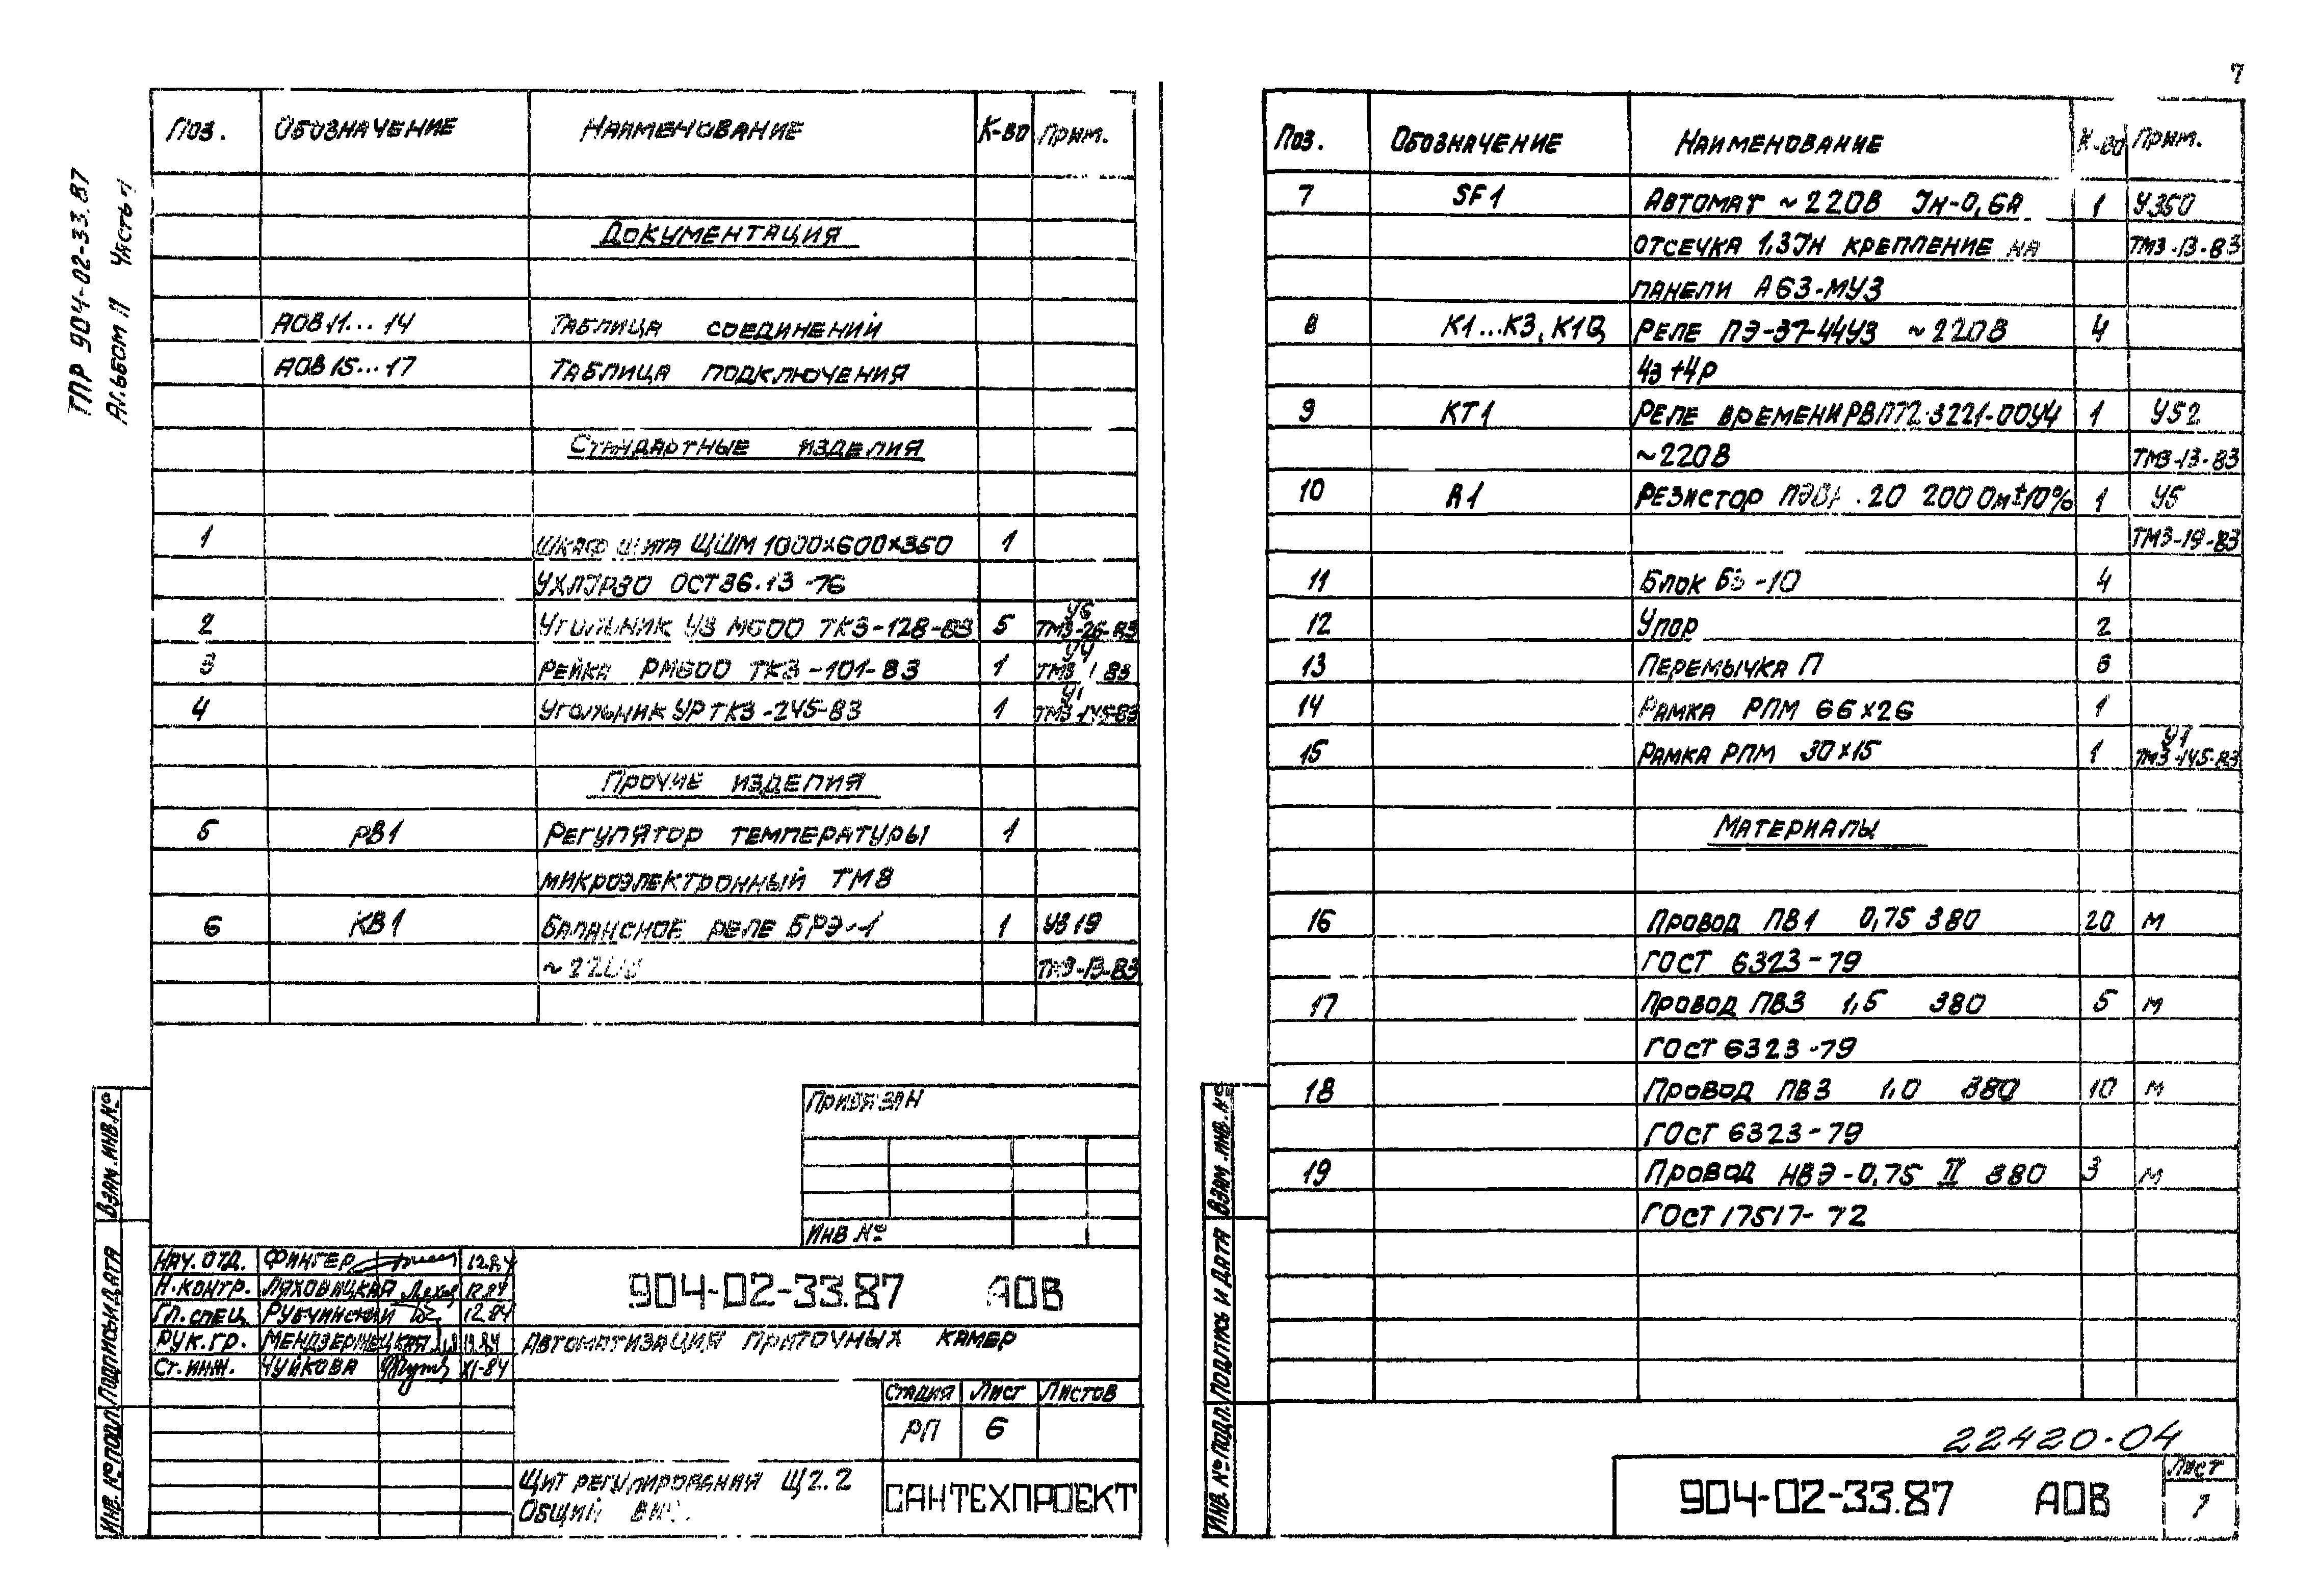 7
ТПР 904-02-33.87
Альбом II Часть 1
Поз. Обозначение Наименование К-во Прим.
Документация
АОВ 11...14 Таблица соединений
АОВ 15...17 Таблица подключения
Стандартные изделия
1 Шкаф щита ЩШМ 1000×600×350 1
ОСТ 36.13-76
2 Угольник УЗ М600 ТКЗ-128-83 5 У6
ТМЗ-26-83
3 Рейка РМ600 ТКЗ-101-83 1 У4
ТМЗ 1 83
4 Угольник УР ТКЗ-245-83 1 У1
ТМЗ-145-83
Прочие изделия
5 РВ1 Регулятор температуры 1
микроэлектронный ТМ8
6 КВ1 Балансное реле БРЭ-1 1 У319
~220В ТМЗ-13-83
Привязан
Инв №
Взам. инв. №
Подпись и дата
Инв. № подл.
Нач. отд. Фингер 12.84
Н. контр. Ляховицкая 12.84
Гл. спец. Рубчинский 12.84
Рук. гр. 12.84
Ст. инж. Чуйкова XI-84
904-02-33.87 АОВ
Автоматизация приточных камер
Стадия Лист Листов
РП 6
Щит регулирования Щ2.2
Общий вид.
САНТЕХПРОЕКТ
Поз. Обозначение Наименование К-во Прим.
7 SF1 Автомат ~220В Iн-0,6А 1 У350
отсечка 1,3Iн крепление на ТМЗ-13-83
панели А63-МУ3
8 К1...К3, К1В Реле ПЭ-37-44У3 ~220В 4
4з+4р
9 КТ1 Реле времени РВП72-3221-00У4 1 У52
~220В ТМЗ-13-83
10 R1 Резистор 20 200 Ом±10% 1 У5
ТМЗ-19-83
11 Блок БЗ-10 4
12 Упор 2
13 Перемычка П 6
14 Рамка РПМ 66×26 1
15 Рамка РПМ 30×15 1 У1
ТМЗ-145-83
Материалы
16 Провод ПВ1 0,75 380 20 м
ГОСТ 6323-79
17 Провод ПВ3 1,5 380 5 м
ГОСТ 6323-79
18 Провод ПВ3 1,0 380 10 м
ГОСТ 6323-79
19 Провод НВЭ-0,75 II 380 3 м
ГОСТ 17517-72
Взам. инв. №
Подпись и дата
Инв. № подл.
22420-04
904-02-33.87 АОВ
Лист
7